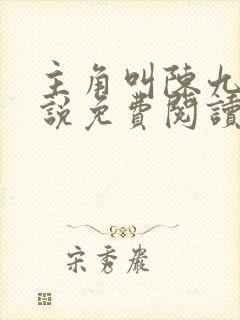 主角叫陳九
說免費閱讀
宋秀巖